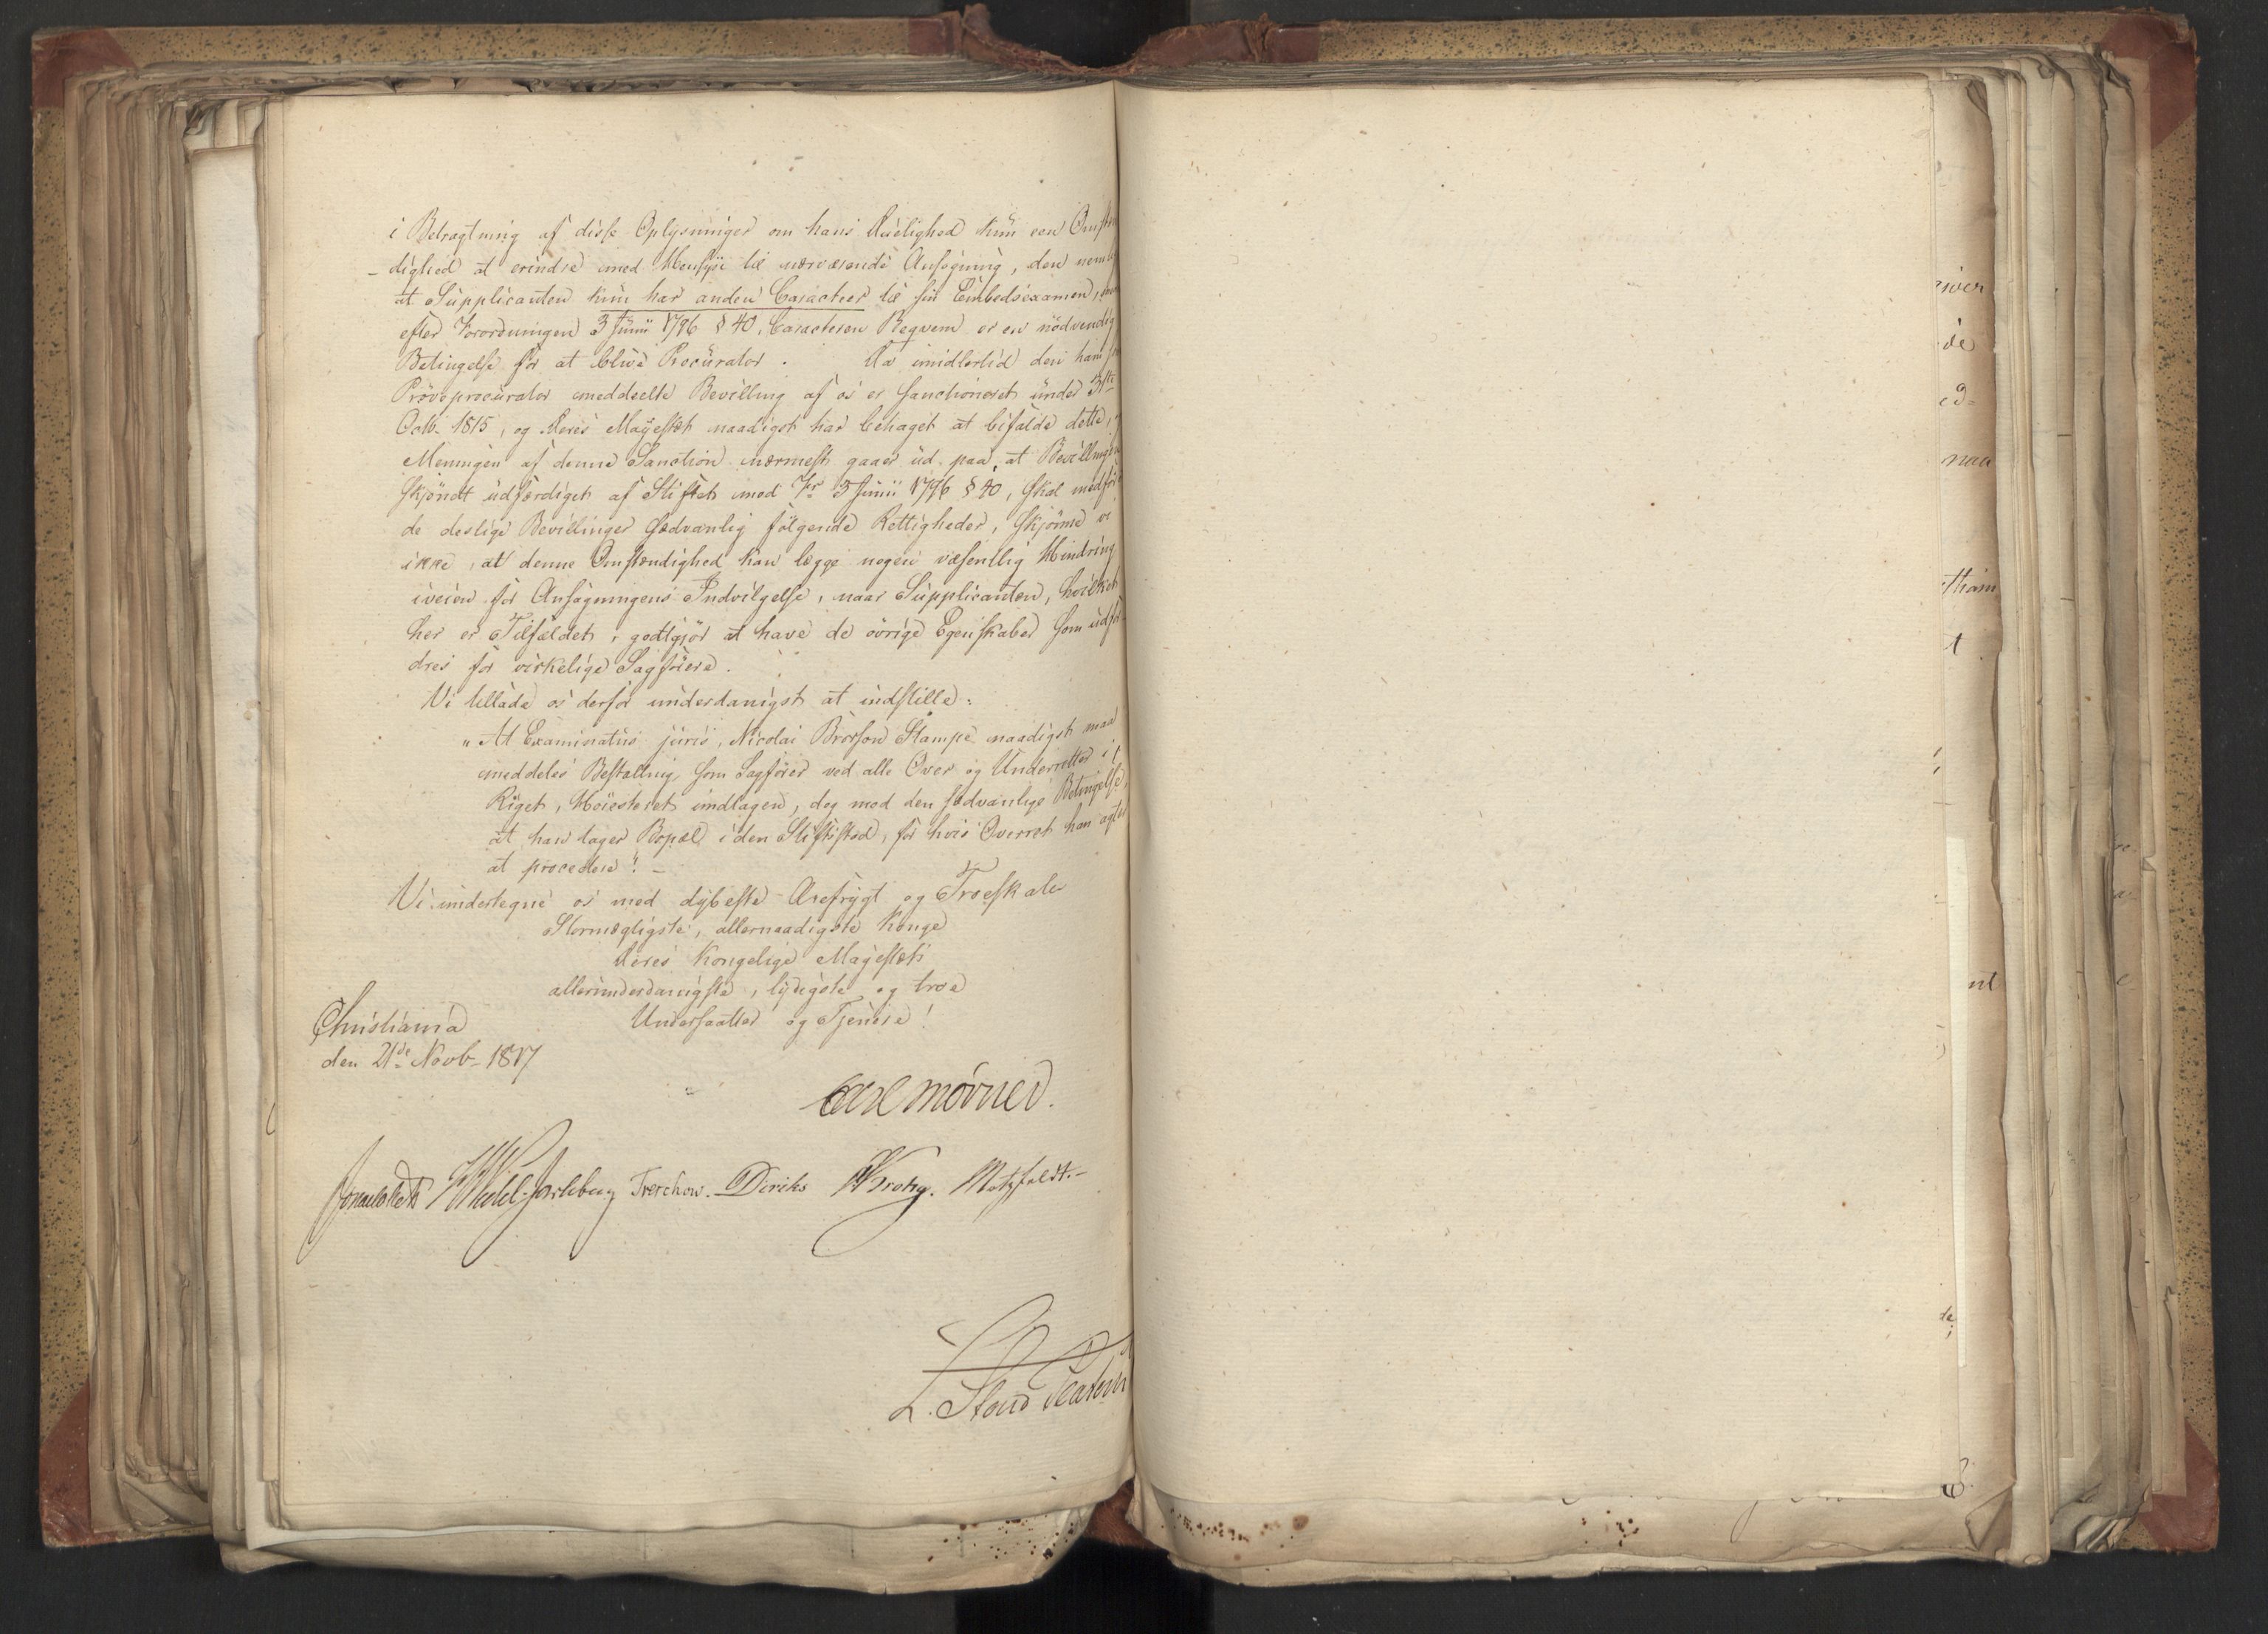 i Betragtning af disse Oplysninger om hans Duelighed kun een Omstæn
-dighed at erindre med Hensyn til nærværende Ansøgning, den nemlig
at Supplicanten kun har anden Caracteer til sin Embedsexamen,
efter Forordningen 3 Junii 1796 § 40, Caracteren Beqvem er en nödvendig
Betingelse for at blive Procurator. Da imidlertid den ham som
Pröveprocurator meddeelte Bevilling af os er sanctioneret under 31te
Octb. 1815, og Deres Majestæt naadigst har behaget at bifalde dette, og
Meningen af denne Sanction nærmest gaaer ud paa, at Bevillingen
skjöndt udfærdiget af Stiftet mod Fr 3 Junii 1796 § 40, skal medföre
de deslige Bevillinger sædvanlig fölgende Rettigheder, skjönne vi
ikke, at denne Omstændighed kan lægge nogen væsentlig Hindring
iveien for Ansögningens Indvilgelse, naar Supplicanten, hvilket
her er Tilfældet, godtgjör at have de övrige Egenskaber som udfor
dres for virkelige Sagförere.
Vi tillade os derfor underdanigst at indstille:
"At Examinatus juris, Nicolai Brorson Stampe naadigst maa
meddeles Bestalling som Sagförer ved alle Over og Underretter i
Riget, Höiesteret undtagen, dog mod den sædvanlige Betingelse,
at han tager Bopæl i den Stiftsstad, for hvis Overret han agter
at procedere". -
Vi undertegne os med dybeste Ærefrygt og Troeskab
Stormægtigste, allernaadigste Konge
Deres Kongelige Majestæts
allerunderdanigste, lydigste og troe
Undersaatter og Tjenere!
Christiania
den 21de Novb. 1817
Carl Mörner.
Jonas Collett HWedel-Jarlsberg Treschow. Diriks Krohg. Motzfeldt.-
L. Stoud Platou